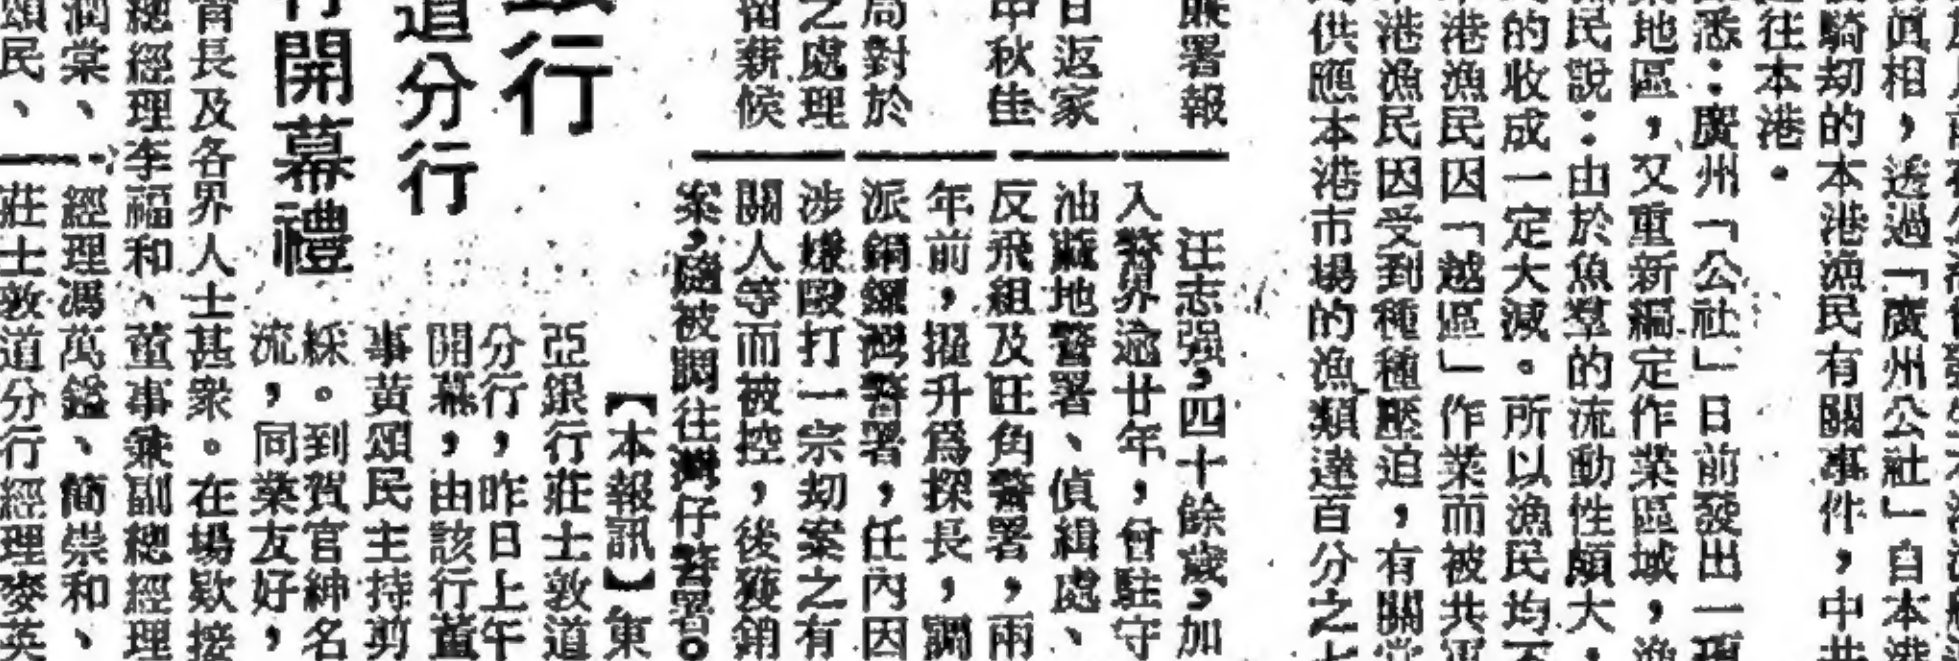 眞相，透過「廣州公社」自本港
騎刧的本港漁民有關事件，中共
往本港。
悉：廣州「公社」日前發出一項
地區，又重新編定作業區域，漁
民說：由於魚羣的流動性頗大，
的收成一定大減。所以漁民均不
港漁民因「越區」作業而被共軍
港漁民因受到種種壓迫，有關當
供應本港市場的漁類達百分之七
署報
日返家
中秋佳
局對於
之處理
留薪候
汪志强，四十餘歲，加
入警界逾廿年，曾駐守
油蔴地警署、偵緝處、
反飛組及旺角警署，兩
年前，擢升爲探長，調
派銅鑼灣警署，任內因
涉嫌毆打一宗刧案之有
關人等而被控，後獲銷
案，隨被調往灣仔警署。
行
道分行
行開幕禮
【本報訊】東
亞銀行莊士敦道
分行，昨日上午
開幕，由該行董
事黃頌民主持剪
綵。到賀官紳名
流，同業友好，
長及各界人士甚衆。在場欵接
總經理李福和、董事兼副總經理
潤棠、
頌民、
經理馮萬鎰、簡崇和、
莊士敦道分行經理麥英